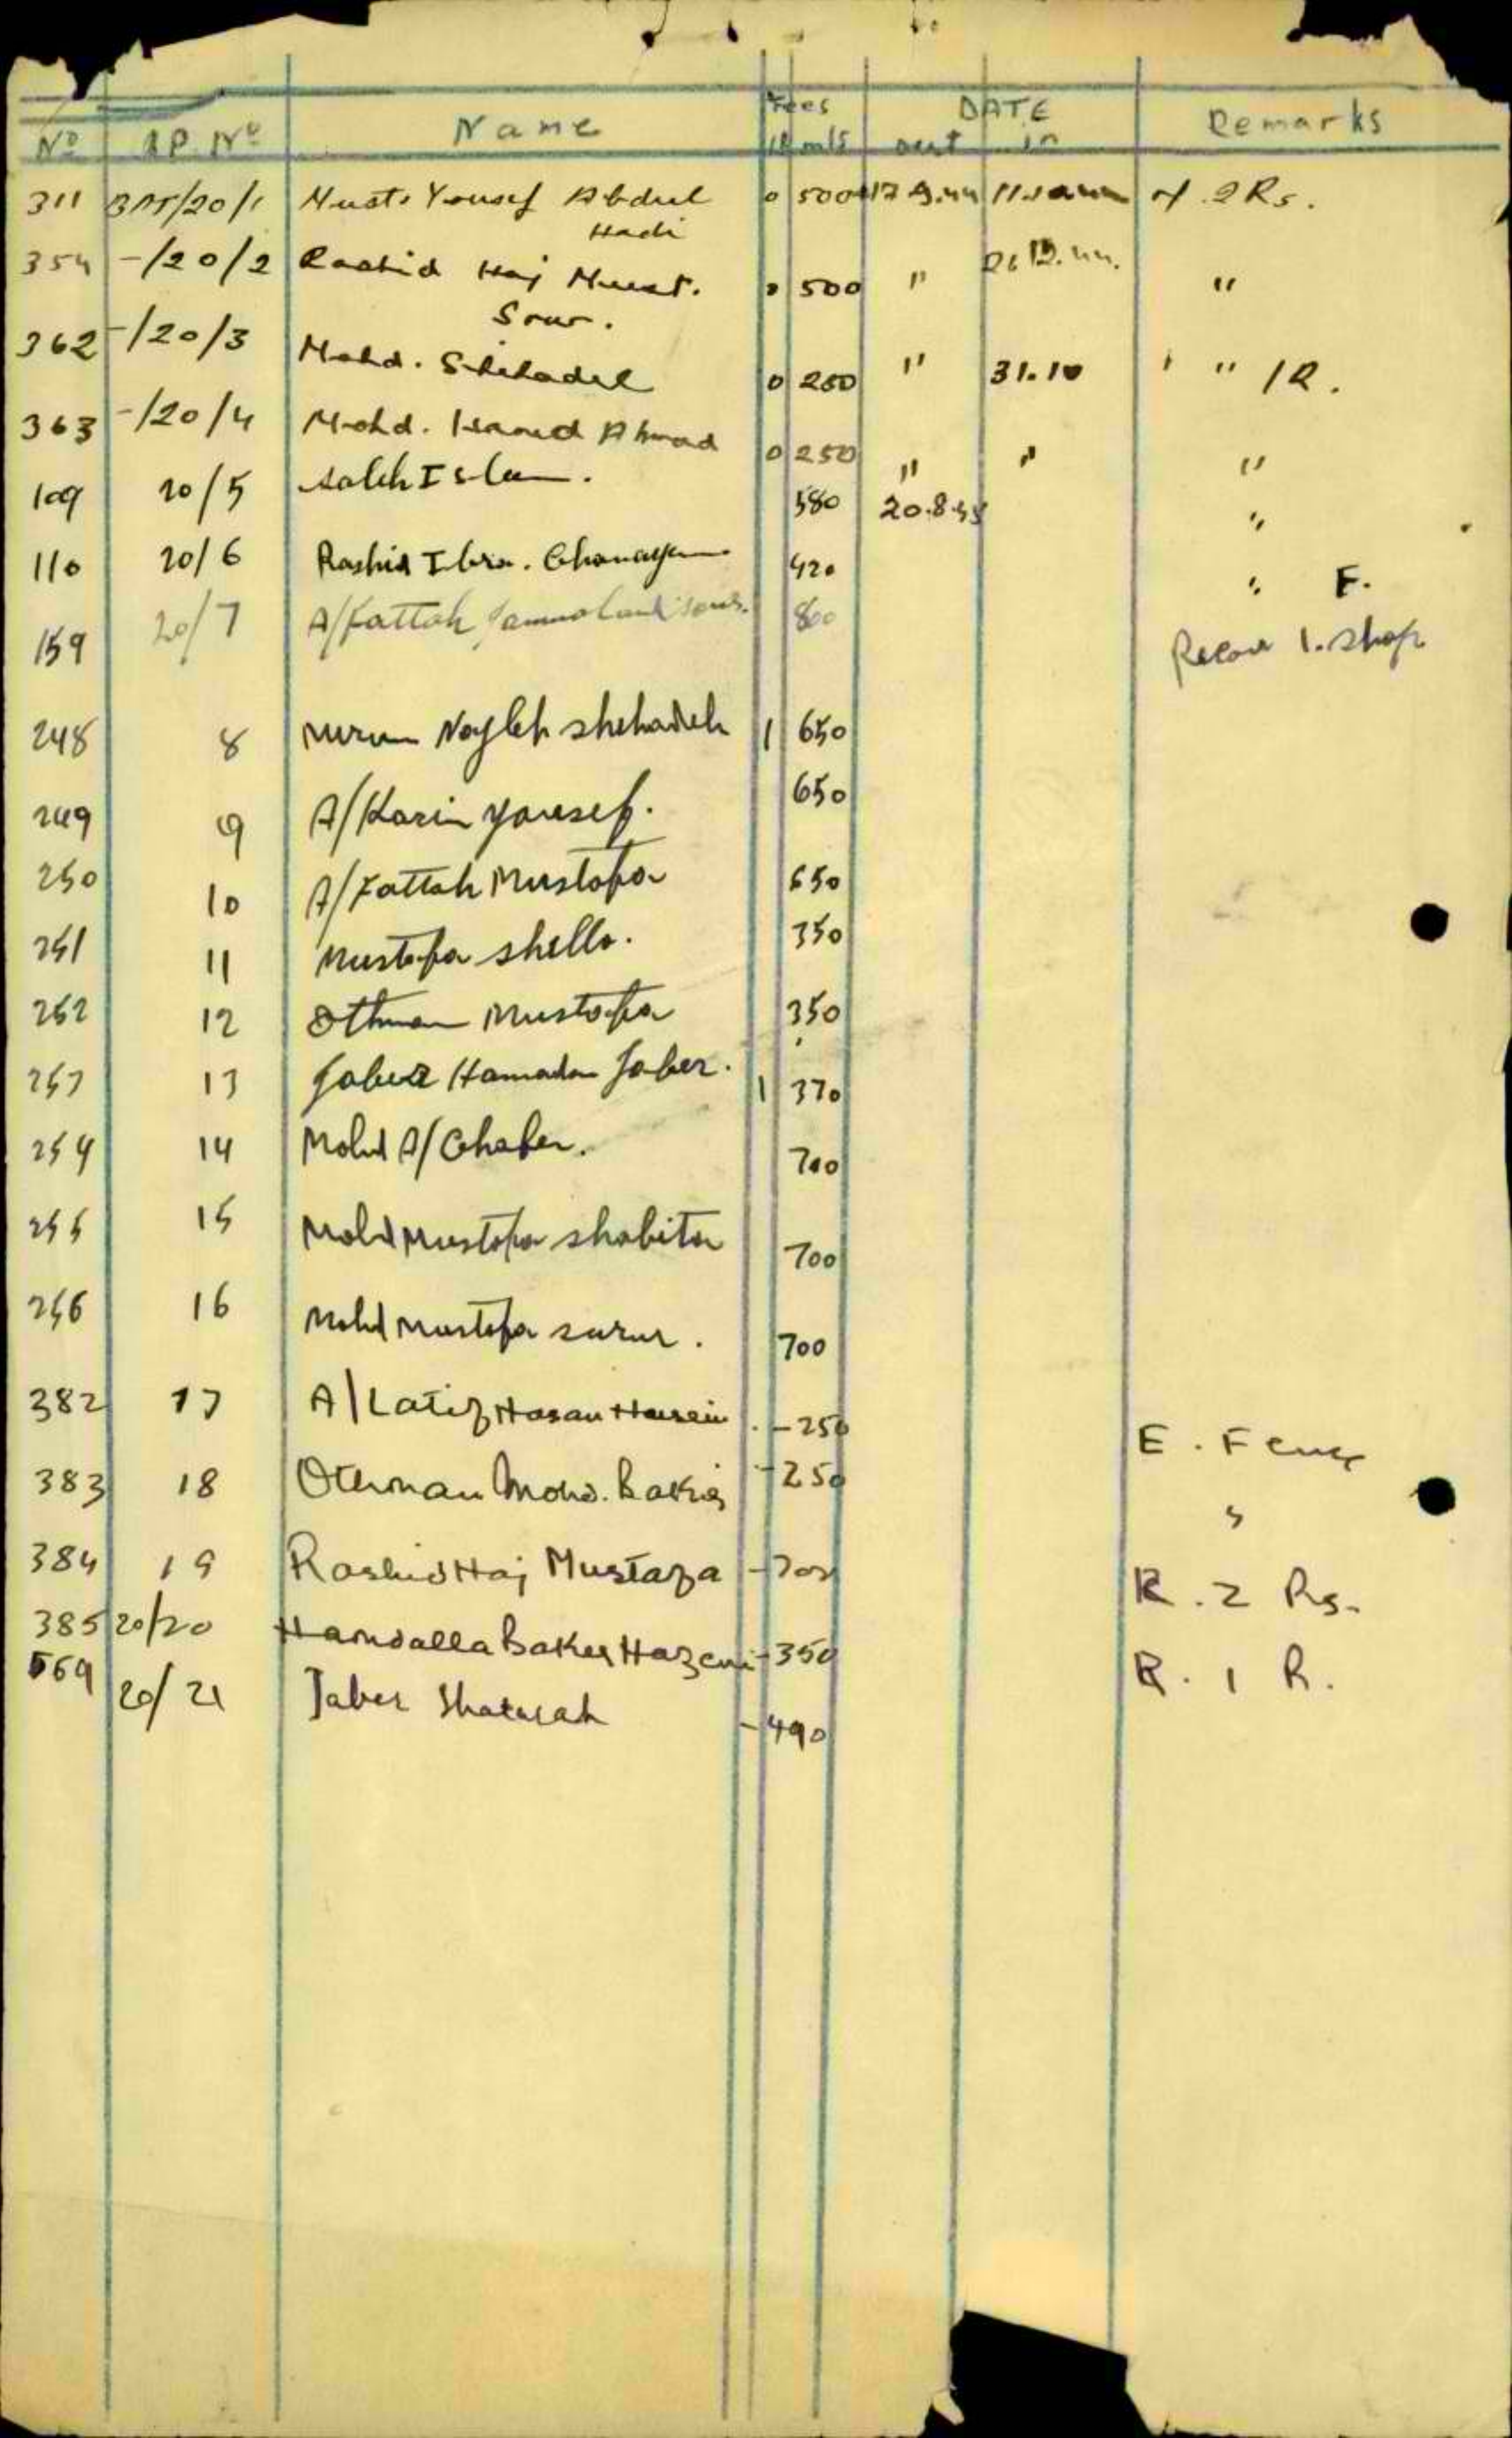 Fees DATE
No AP. No Name mils out in Remarks
311 /20/1 Must. Yousef Abdul Hadi 0 500 17 9.44 2 Rs.
354 -/20/2 Rashid Haj Must. Sour. 0 500 " 26 12.44. "
362 -/20/3 Mohd. Shehadeh 0 250 " 31.10 " " 1R.
363 -/20/4 Mohd. Ahmad 0 250 " " "
109 20/5 Saleh 580 20.8.45 "
110 20/6 Rashid Ibra. Ghanayem 420 " F.
159 20/7 A/Fattah 800 1. Shop
248 8 Nayleh Shehadeh 1 650
249 9 A/Karim Yousef. 650
250 10 A/Fattah Mustafa 650
251 11 Mustafa Shella. 350
252 12 Othman Mustafa 350
253 13 Jaber Hamadan Jaber. 1 370
254 14 Mohd A/Ghafer. 700
255 15 Mohd Mustafa Shabita 700
256 16 Mohd Mustafa Surur. 700
382 17 A/Latif Hasan Hussein - 250 E. Fence
383 18 Othman Mohd. Baker - 250 "
384 19 Rashid Haj Mustafa - 700 R. 2 Rs.
385 20/20 Hamdalla Baker - 350 R. 1 R.
569 20/21 Jaber - 490